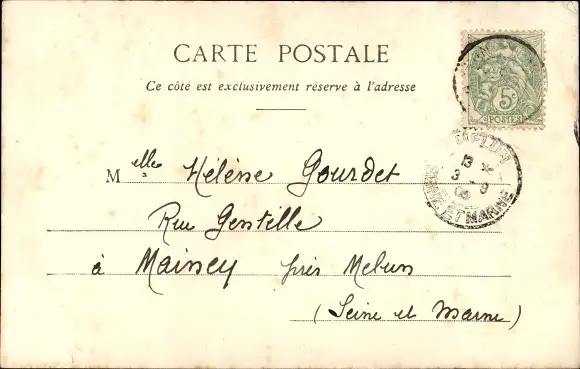 CARTE POSTALE
Ce côté est exclusivement réservé à l'adresse
5c
POSTES
Melle Hélène Gourdet
Rue Gentille
à Maincy près Melun
(Seine et Marne)
MELUN
13
3 - 9
SEINE ET MARNE